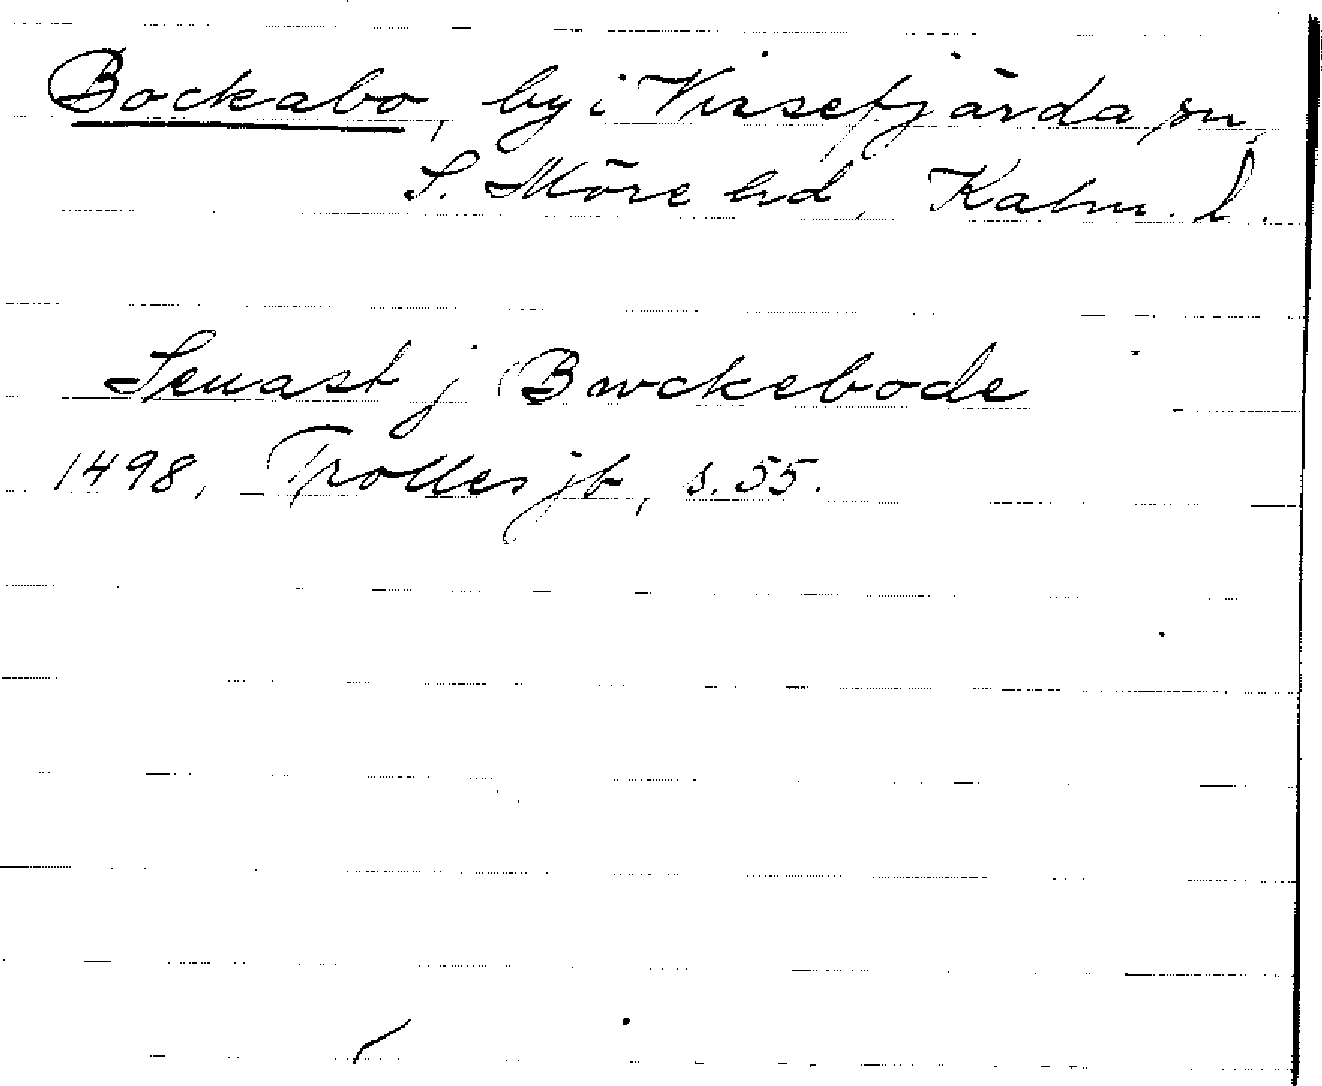 Bockabo, by i Vissefjärda sn,
S. Möre hd, Kalm. l.
Senast j Bwckebode
1498, Trolles jb, s. 55.